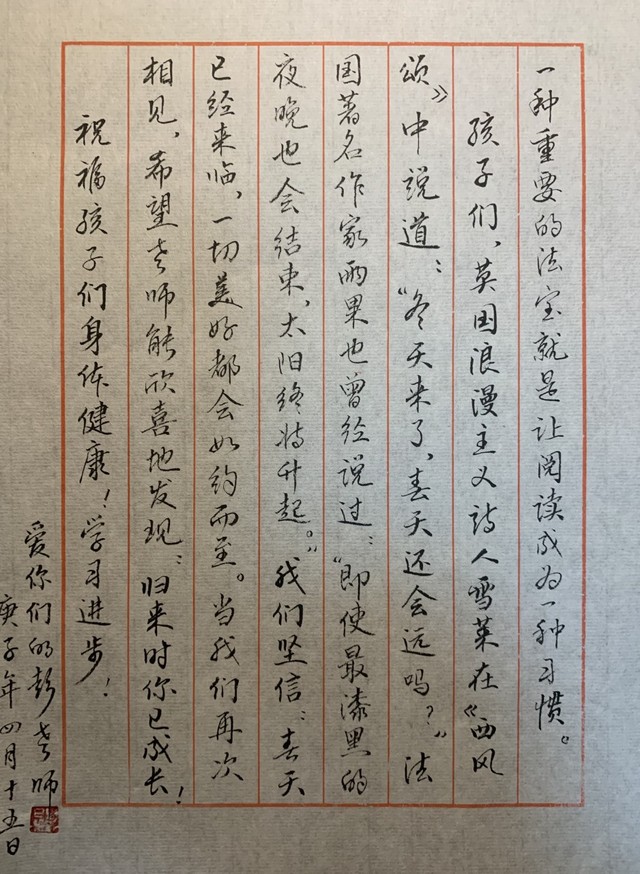 一种重要的法宝就是让阅读成为一种习惯。
孩子们，英国浪漫主义诗人雪莱在《西风
颂》中说道：“冬天来了，春天还会远吗？”法
国著名作家雨果也曾经说过：“即使最漆黑的
夜晚也会结束，太阳终将升起。”我们坚信：春天
已经来临，一切美好都会如约而至。当我们再次
相见，希望老师能欣喜地发现：归来时你已成长！
祝福孩子们身体健康！学习进步！
爱你们的彭老师
庚子年四月十五日